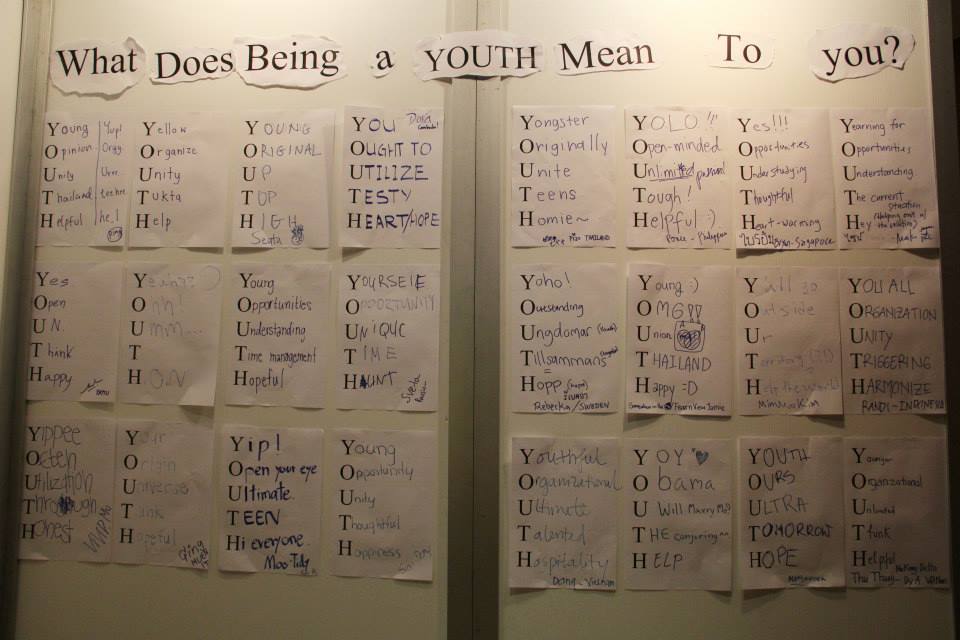 What Does Being a YOUTH Mean To you?
Young Yup!
Opinion
Unity
Thailand
Helpful he!
Yellow
Organize
Unity
Tukta
Help
YOUNG
ORIGINAL
UP
TOP
HIGH
YOU
OUGHT TO
UTILIZE
TESTY
HEART/HOPE
Yongster
Originally
Unite
Teens
Homie~
THAILAND
YOLO!!
Open-minded
Unlimited
Tough!
Helpful :)
Yes!!!
Opportunities
Understudying
Thoughtful
Heart-warming
Singapore
Yearning for
Opportunities
Understanding
The current situation
Hey
Yes
Open
UN.
Think
Happy
Yeah??
Ohh!
Umm...
T
H.ON
Young
Opportunities
Understanding
Time management
Hopeful
YOURSELF
OPPORTUNITY
UNIQUE
TIME
HAUNT
Sveta
Yoho!
Outstanding
Ungdomar
Tillsammans
Hopp (hope)
Rebecka/SWEDEN
Young :)
OMG!!
Union
THAILAND
Happy =D
Y'all go
Outside
Ur
Territory
Help the World
YOU ALL
ORGANIZATION
UNITY
TRIGGERING
HARMONIZE
RANDI-INDONESIA
Yippee
Often
Utilization
Through
Honest
Your
Origin
Universe
Tank
Hopeful
Yip!
Open your eye
Ultimate.
TEEN
Hi everyone.
Moo-Tidy
Young
Opportunity
Unity
Thoughtful
Happiness
Youthful
Organizational
Ultimate
Talented
Hospitality
Dong-Vietnam
YOY
Obama
U Will Marry Me?
THE conjering~~
HELP
YOUTH
OURS
ULTRA
TOMORROW
HOPE
Younger
Organizational
Unloaded
Think
Helpful